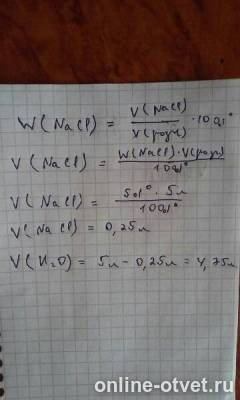 W(NaCl) = V(NaCl) / V(раст) · 100%
V(NaCl) = W(NaCl)·V(раст) / 100%
V(NaCl) = 5% · 5л / 100%
V(NaCl) = 0,25л
V(H₂O) = 5л - 0,25л = 4,75л
online-otvet.ru